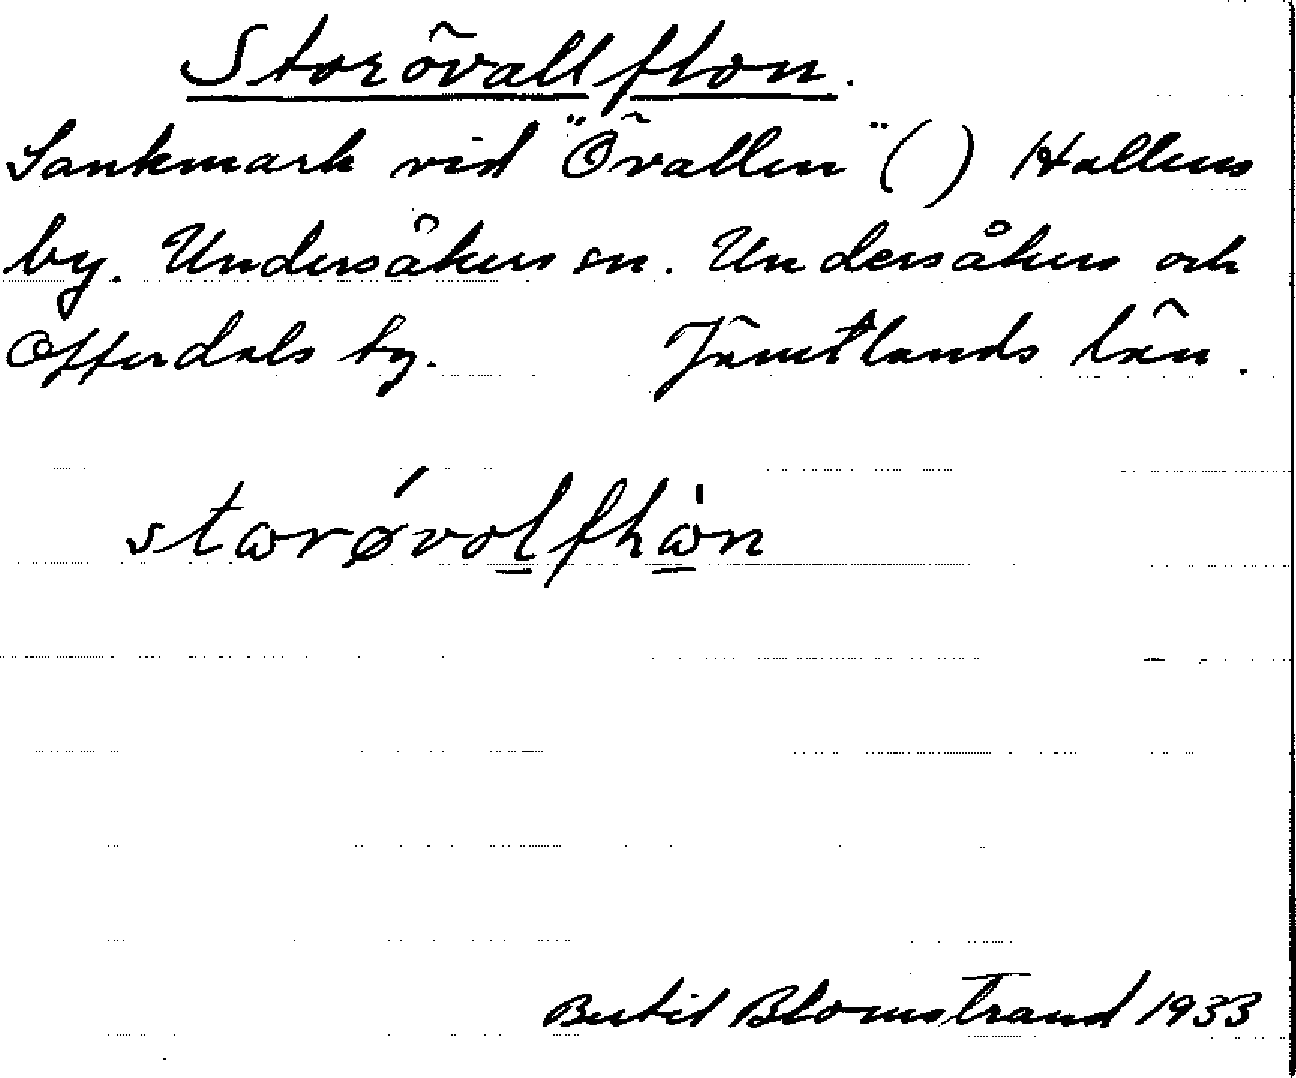 Storövallflon.
Sankmark vid "Övallen" ( ) Hallens
by. Undersåkers sn. Undersåkers och
Offerdals tg. Jämtlands län.
starøvolflån
Bertil Blomstrand 1933